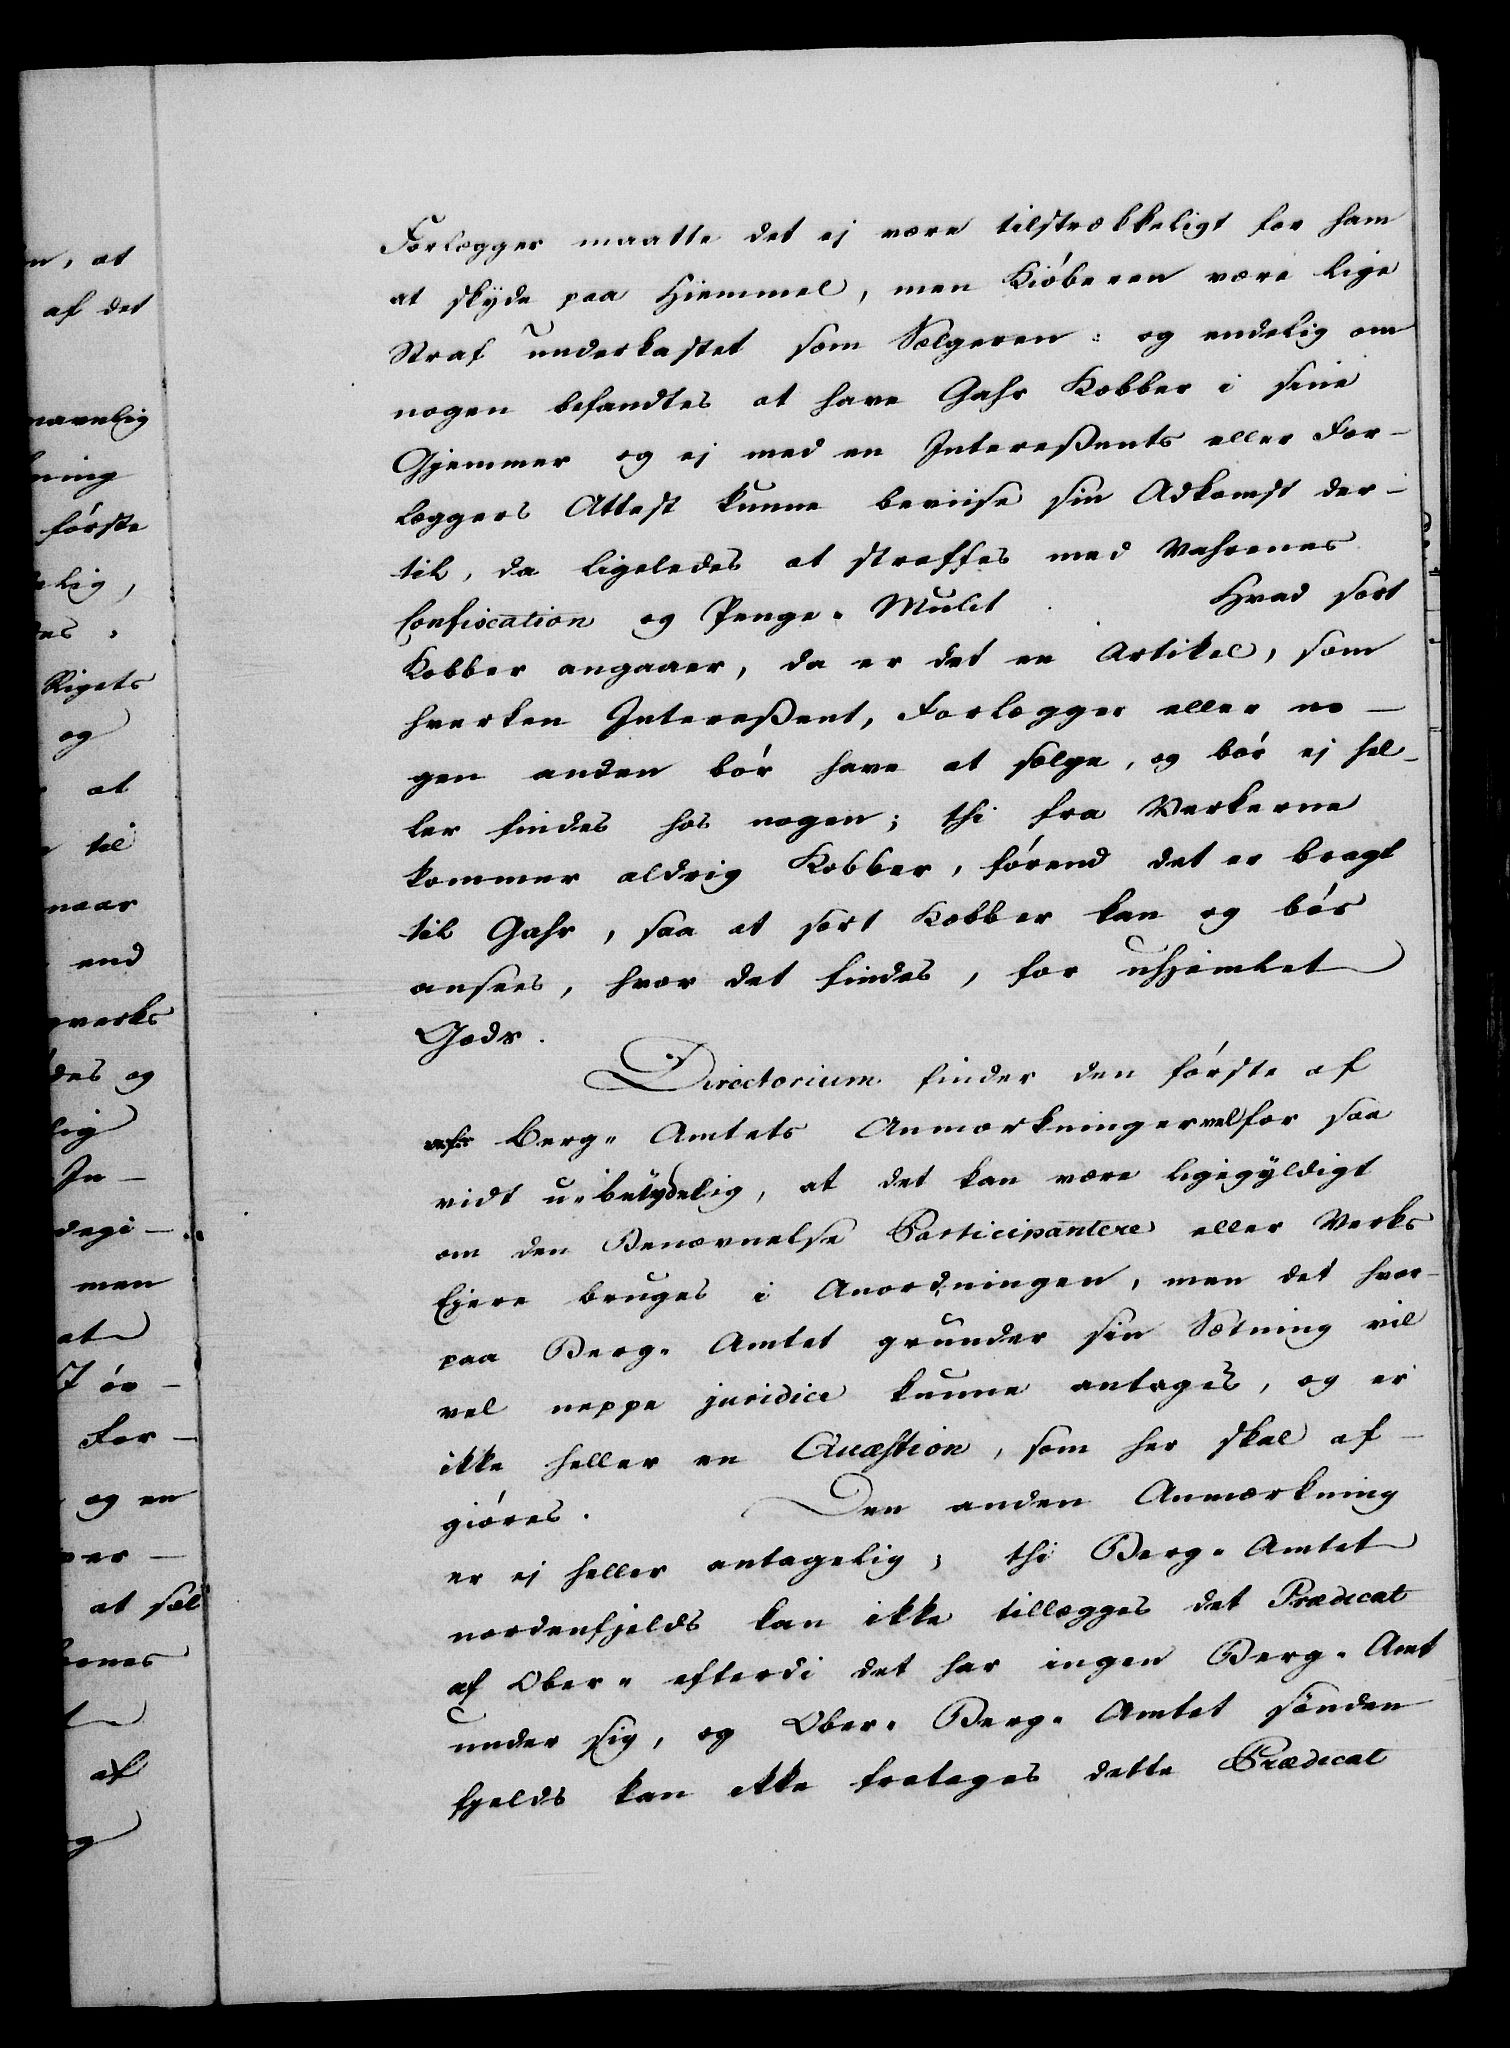 n, at
af det
navnlig
ning
første
elig,
des,
Rigets
og
at
til
naar
end
gverks
des og
lig
In-
degi-
men
at
7 ør-
For-
og en
per-
at sæl
kones
af
og
Forlægger maatte det ej være tilstrækkeligt for ham
at skyde paa Hiemmel, men Kiöberen være lige
Straf underkastet som Sælgeren: og endelig om
nogen befandtes at have Gahr Kobber i sine
Gjemmer og ej med en Intereßents eller For-
læggers Attest kunne beviise sin Adkomst der-
til, da ligeledes at straffes med Vahrenes
Confiscation og Penge-Mulct. Hvad sort
Kobber angaaer, da er det en Artikel, som
hverken Intereßent, Forlægger eller no-
gen anden bör have at sælge, og bör ej hel-
ler findes hos nogen; thi fra Verkerne
kommer aldrig Kobber, förend det er bragt
til Gahr, saa at sort Kobber kan og bör
ansees, hvor det findes, for uhjemlet
Gods.
Directorium finder den förste af
Berg-Amtets Anmærkninger vel for saa
vidt u-betydelig, at det kan være ligegyldigt
om den Benævnelse Participantere eller Verks
Ejere bruges i Anordningen, men det hvor-
paa Berg-Amtet grunder sin Sætning vil
vel neppe juridice kunne antages, og er
ikke heller en Quæstion, som her skal af-
giöres. Den anden Anmærkning
er ej heller antagelig; thi Berg-Amtet
nordenfjelds kan ikke tillægges det Prædicat
af Ober- efterdi det har ingen Berg-Amt
under sig, og Ober-Berg-Amtet sönden
fjelds kan ikke fratages dette Prædicat